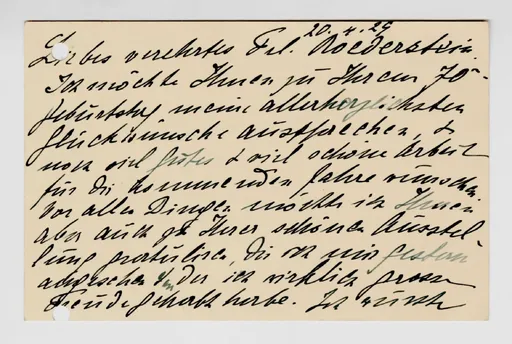 20.4.29
Liebes verehrtes Frl. Roederstein.
Ich möchte Ihnen zu Ihrem 70-
Geburtstag meine allerherzlichsten
Glückwünsche aussprechen, &
noch viel Gutes & viel schöne Arbeit
für die kommenden Jahre wünschen
Vor allen Dingen möchte ich Ihnen
aber auch zu Ihrer schönen Ausstel-
lung gratulieren, die ich mir gestern
angesehen & an der ich wirklich grosse
Freude gehabt habe. Ich